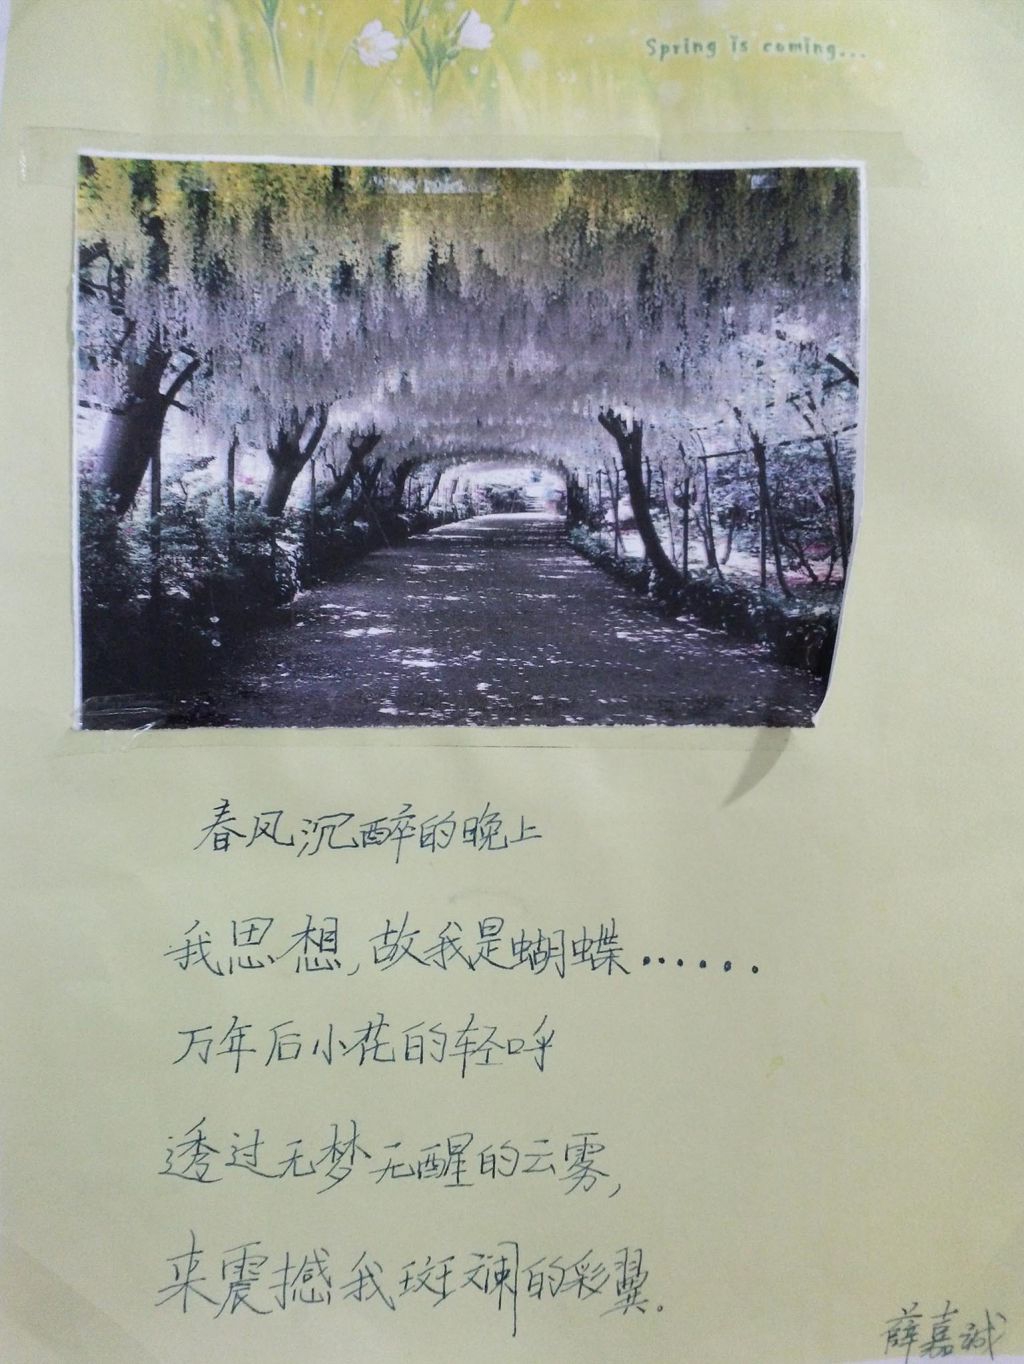 Spring is coming...
春风沉醉的晚上
我思想,故我是蝴蝶......
万年后小花的轻呼
透过无梦无醒的云雾,
来震撼我斑斓的彩翼.
薛嘉诚